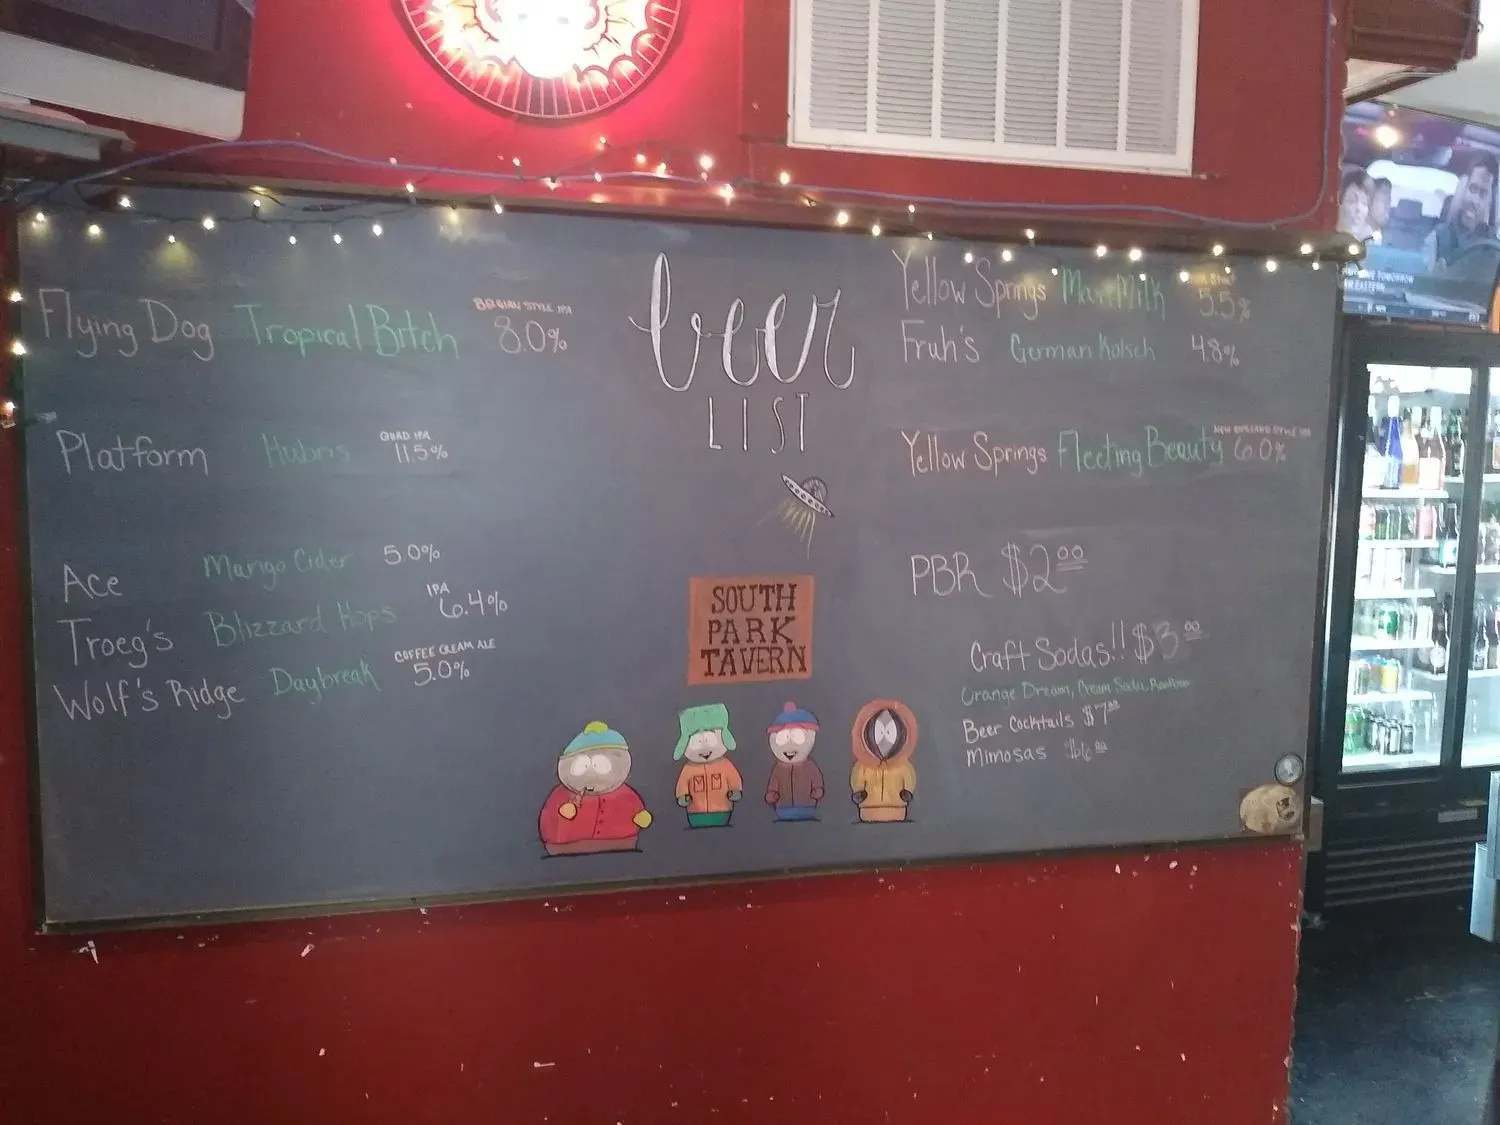 beer
LIST
Flying Dog Tropical Bitch BELGIAN STYLE IPA 8.0%
Platform Hubris QUAD IPA 11.5%
Ace Mango Cider 5.0%
Troeg's Blizzard Hops IPA 6.4%
Wolf's Ridge Daybreak COFFEE CREAM ALE 5.0%
SOUTH
PARK
TAVERN
Yellow Springs Milk 5.5%
Fruh's German Kolsch 4.8%
Yellow Springs Fleeting Beauty NEW ENGLAND STYLE IPA 6.0%
PBR $2.00
Craft Sodas!! $3.00
Orange Dream, Cream Soda, Rootbeer
Beer Cocktails $7.00
Mimosas
TOMORROW
EASTERN